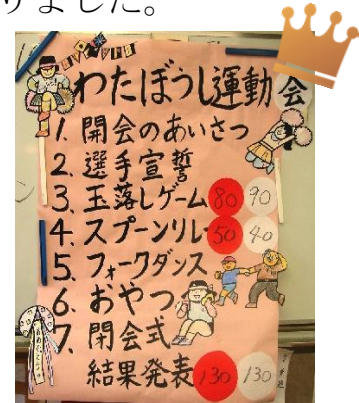 りました。
わたぼうし運動会
1. 開会のあいさつ
2. 選手宣誓
3. 玉落しゲーム 80 90
4. スプーンリレー 50 40
5. フォークダンス
6. おやつ
7. 閉会式
結果発表 130 130